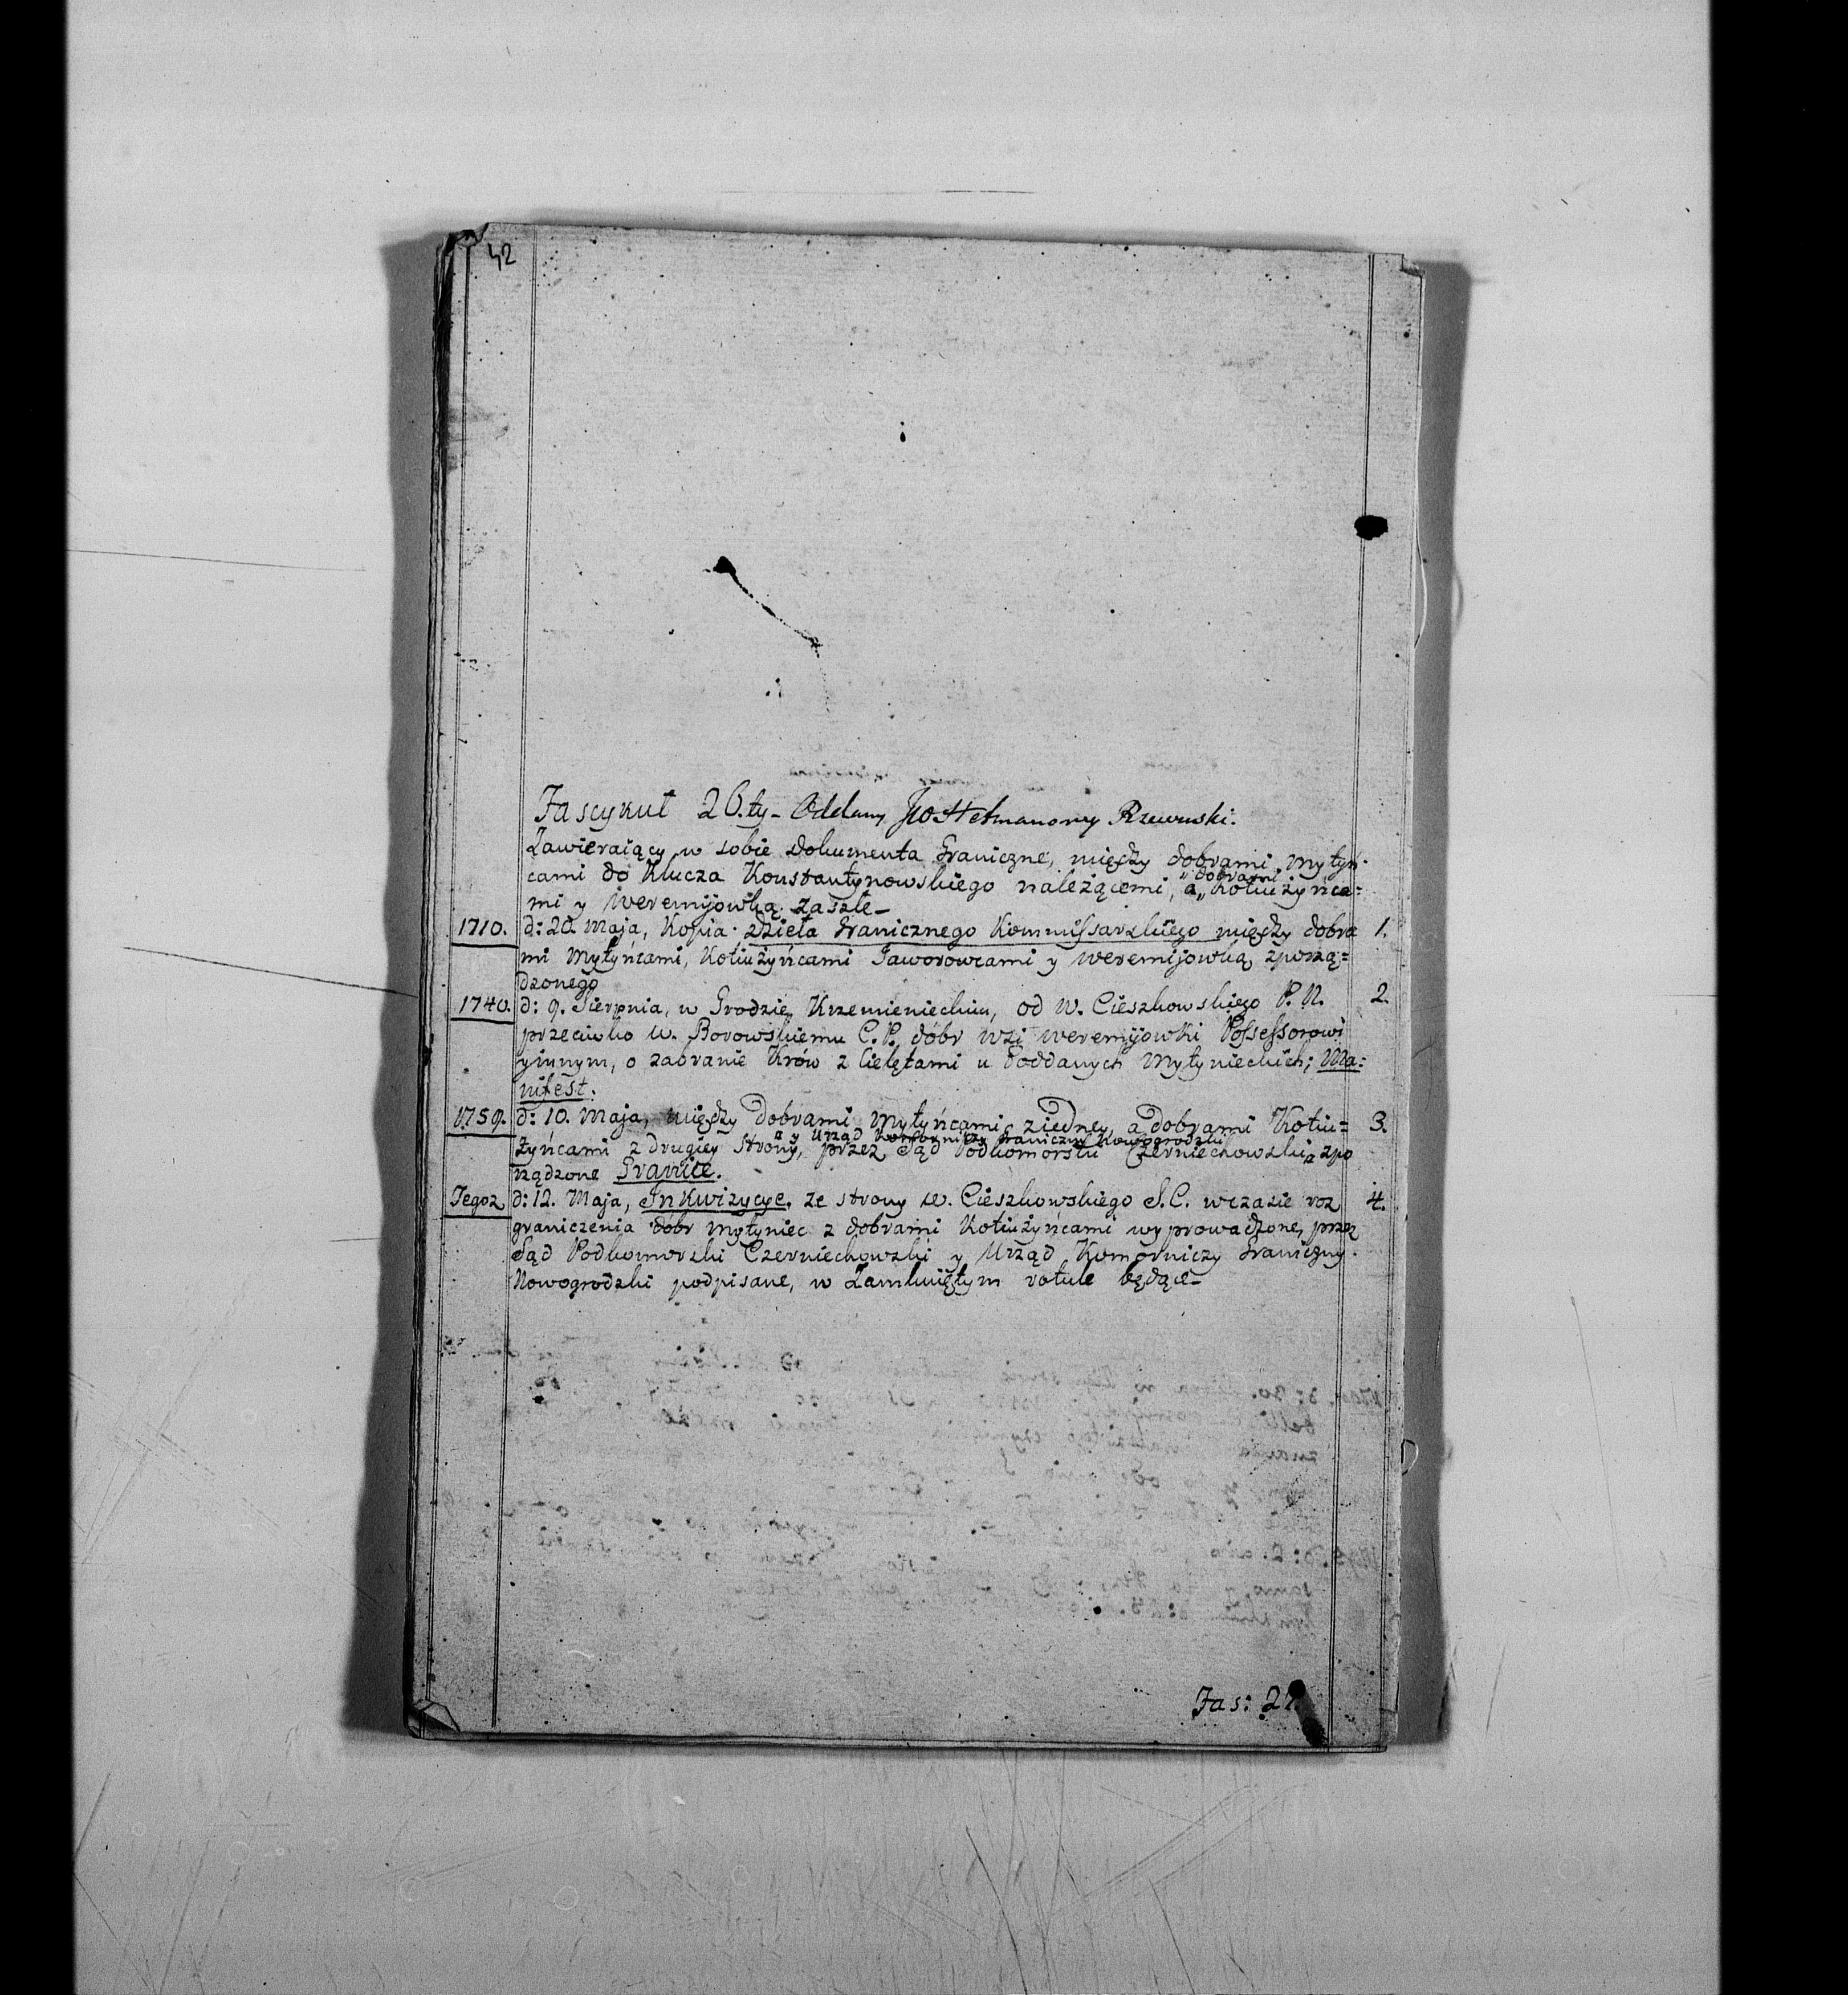 42
Fascykuł 26.ty - Oddany JPo Hetmanowey Rzewuski.
Zawieraiący w sobie Dokumenta Graniczne, między dobrami Mytyń-
cami do Klucza Konstantynowskiego należącemi, a „dobrami Kotiużyńca=
mi y Weremijowką zaszłe -
1710. d: 20. Maja, Kopia dzieła Granicznego Kommissarskiego między dobra 1.
mi Mytyńcami, Kotiużyńcami Jaworowcami y Weremijowką zporzą=
dzonego
1740. d: 9. Sierpnia, w Grodzie Krzemienieckim, od W. Cieszkowskiego P. N. 2.
przeciwko W. Borowskiemu C. P. dóbr wsi Weremijowki Possessorowi
y innym, o zabranie Krów z Cielętami u Poddanych Mytynieckich; Ma=
nifest.
1759. d: 10. Maja, między Dobrami Mytyńcami z iedney, a dobrami Kotiu= 3.
żyńcami z drugiey strony, przez Sąd Podkomorski Czerniechowski zpo
y Urząd Komorniczy Graniczny Nowogrodzki
rządzone Granice.
Tegoż d: 12. Maja, Inkwizycye, ze strony W. Cieszkowskiego S. C. w czasie roz 4.
graniczenia dobr Mytyniec z dobrami Kotiużyńcami wyprowadzone, przez
Sąd Podkomorski Czerniechowski y Urząd Komorniczy Graniczny
Nowogrodzki podpisane, w Zamkniętym rotule będące -
Fas: 27.